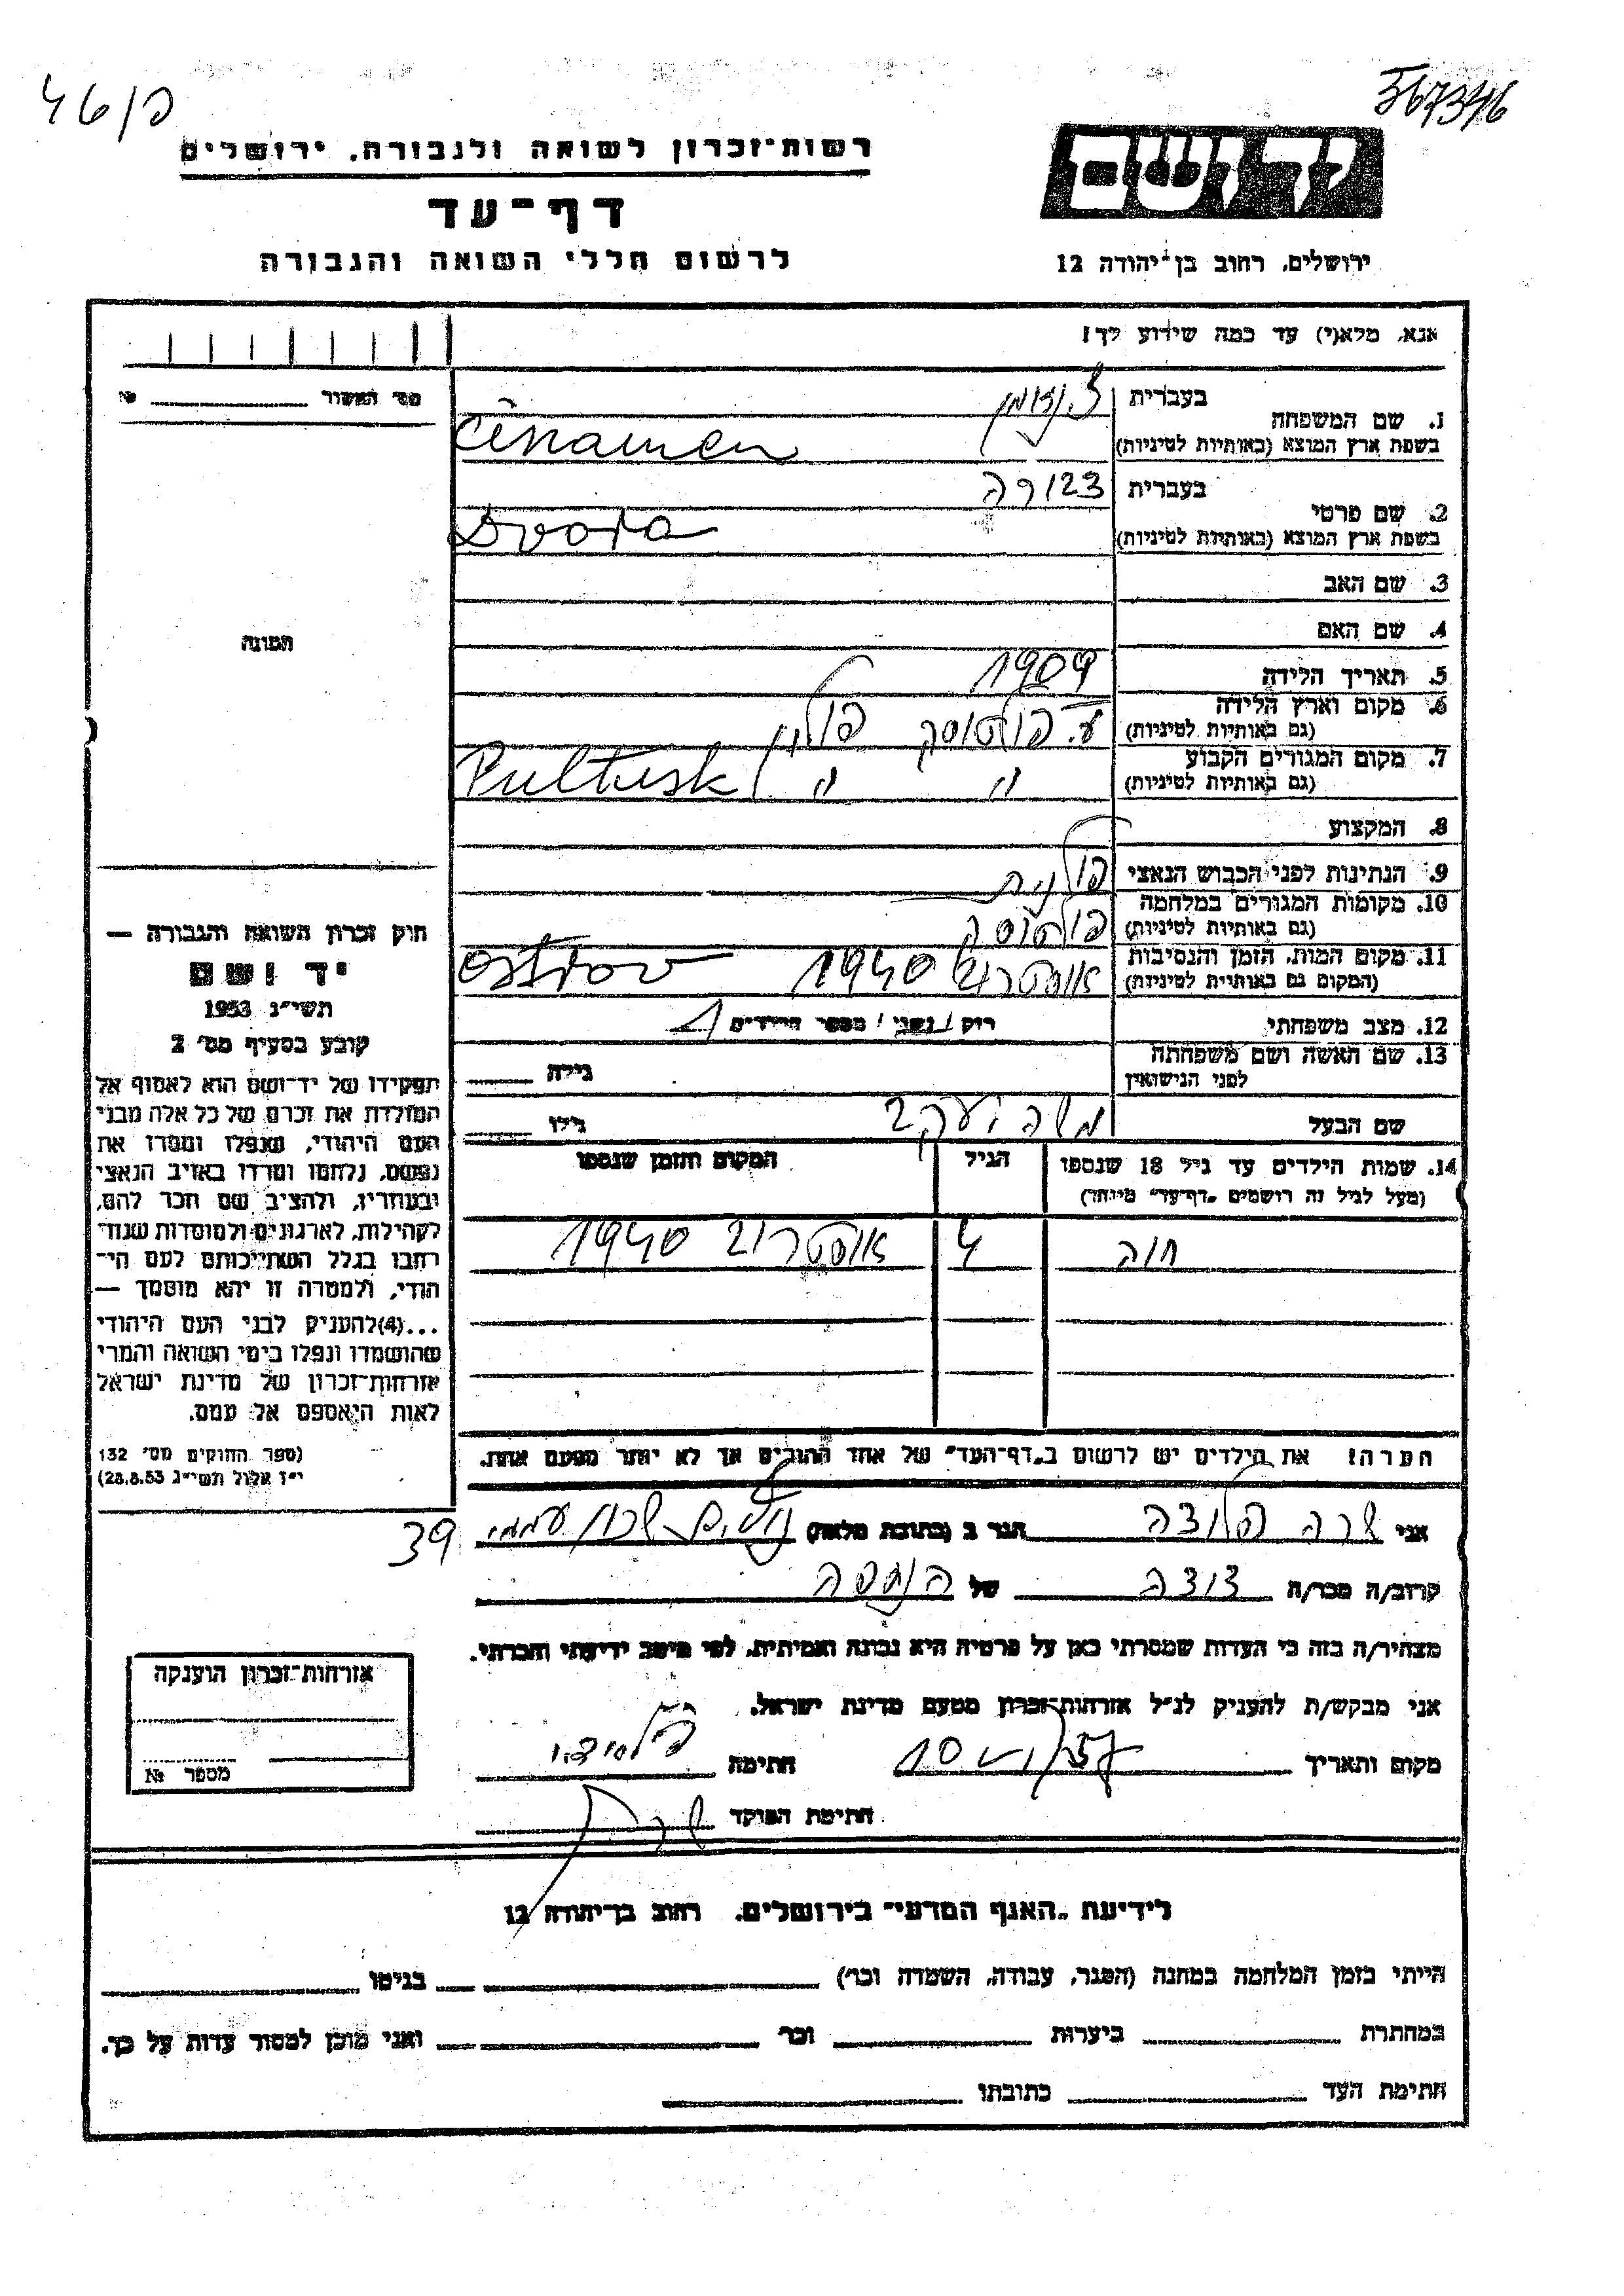 367346
פ/46
רשות-זכרון לשואה ולגבורה, ירושלים
דף-עד
לרשום חללי השואה והגבורה
יד ושם
ירושלים, רחוב בן-יהודה 12
אנא, מלא(י) עד כמה שידוע לך!
מס' האשור №
1. שם המשפחה בעברית
בשפת ארץ המוצא (באותיות לטיניות) Cinamen
2. שם פרטי בעברית דבורה
בשפת ארץ המוצא (באותיות לטיניות) Dvora
3. שם האב
4. שם האם
5. תאריך הלידה 1909
6. מקום וארץ הלידה פולטוסק פולין
(גם באותיות לטיניות)
7. מקום המגורים הקבוע " " Pultusk
(גם באותיות לטיניות)
8. המקצוע
9. הנתינות לפני הכבוש הנאצי פולנית
10. מקומות המגורים במלחמה פולטוסק
(גם באותיות לטיניות)
11. מקום המות, הזמן והנסיבות אוסטרוב 1940 Ostrov
(המקום גם באותיות לטיניות)
12. מצב משפחתי רוק / נשוי / מספר הילדים 1
13. שם האשה ושם משפחתה גילה
לפני הנישואין
שם הבעל משה יעקב גילו
14. שמות הילדים עד גיל 18 שנספו הגיל המקום והזמן שנספו
(מעל לגיל זה רושמים "דף-עד" מיוחד)
חוה 4 אוסטרוב 1940
הערה! את הילדים יש לרשום ב"דף-העד" של אחד ההורים אך לא יותר מפעם אחת.
תמונה
חוק זכרון השואה והגבורה —
יד ושם
תשי"ג 1953
קובע בסעיף מס' 2
תפקידו של יד-ושם הוא לאסוף אל
המולדת את זכרם של כל אלה מבני
העם היהודי, שנפלו ומסרו את
נפשם, נלחמו ומרדו באויב הנאצי
ובעוזריו, ולהציב שם וזכר להם,
לקהילות, לארגונים ולמוסדות שנח־
רבו בגלל השתייכותם לעם הי־
הודי, ולמטרה זו יהא מוסמך —
...(4) להעניק לבני העם היהודי
שהושמדו ונפלו בימי השואה והמרי
אזרחות-זכרון של מדינת ישראל
לאות היאספם אל עמם.
(ספר החוקים מס' 132
י"ז אלול תשי"ג 28.8.53)
אני שרה הגר ב (כתובת מלאה) שכון עממי 39
קרוב/ה מכר/ה דודה של הנספה
מצהיר/ה בזה כי העדות שמסרתי כאן על פרטיה היא נכונה ואמיתית, לפי מיטב ידיעתי והכרתי.
אני מבקש/ת להעניק לנ"ל אזרחות-זכרון מטעם מדינת ישראל.
מקום ותאריך חתימה
חתימת הפוקד
אזרחות-זכרון הוענקה
מספר №
לידיעת "האגף המדעי" בירושלים, רחוב בן-יהודה 12
הייתי בזמן המלחמה במחנה (הסגר, עבודה, השמדה וכו') בגיטו
במחתרת ביערות וכו' ואני מוכן למסור עדות על כך.
חתימת העד כתובתו